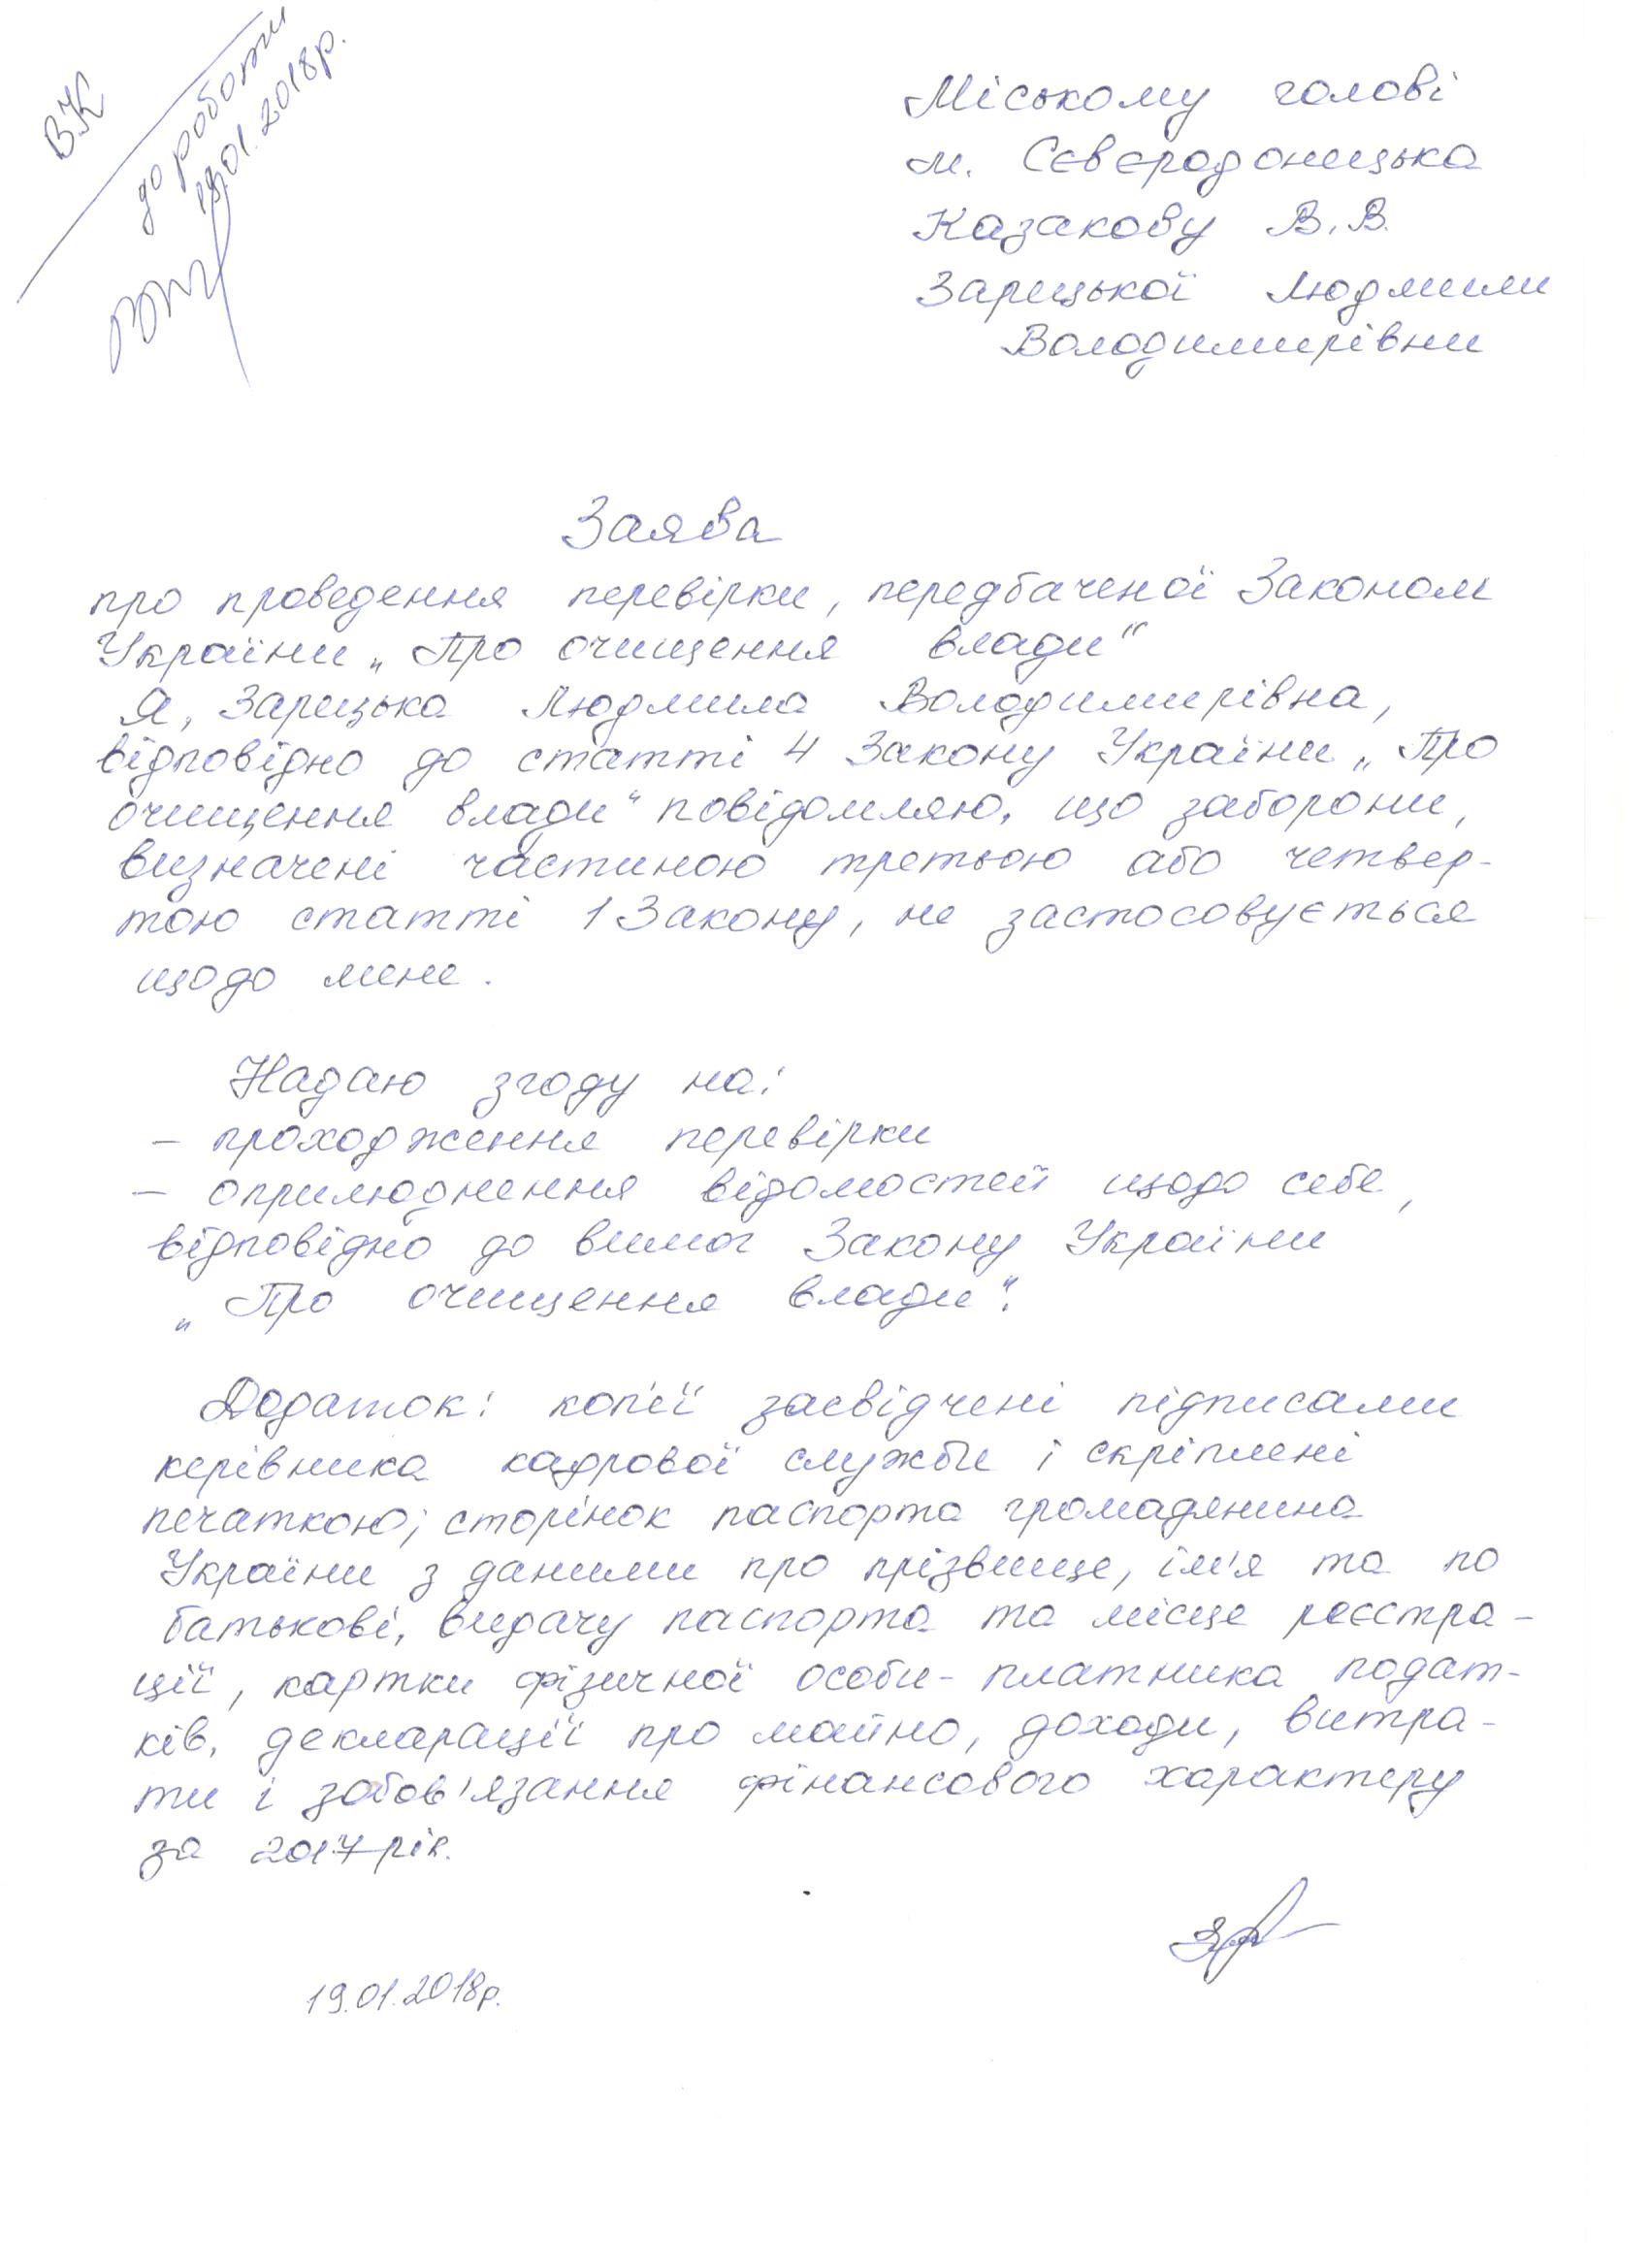 ВК
до роботи
19.01.2018р.
Міському голові
м. Сєвєродонецька
Казакову В.В.
Зарицької Людмили
Володимирівни
Заява
про проведення перевірки, передбаченої Законом
України „Про очищення влади“
Я, Зарицька Людмила Володимирівна,
відповідно до статті 4 Закону України „Про
очищення влади“ повідомляю, що заборони,
визначені частиною третьою або четвер-
тою статті 1 Закону, не застосовується
щодо мене.
Надаю згоду на:
– проходження перевірки
– оприлюднення відомостей щодо себе,
відповідно до вимог Закону України
„Про очищення влади“.
Додаток: копії засвідчені підписами
керівника кадрової служби і скріплені
печаткою; сторінок паспорта громадянина
України з даними про прізвище, ім'я та по
батькові, видачу паспорта та місце реєстра-
ції, картки фізичної особи-платника подат-
ків, декларації про майно, доходи, витра-
ти і зобов'язання фінансового характеру
за 2017 рік.
19.01.2018р.